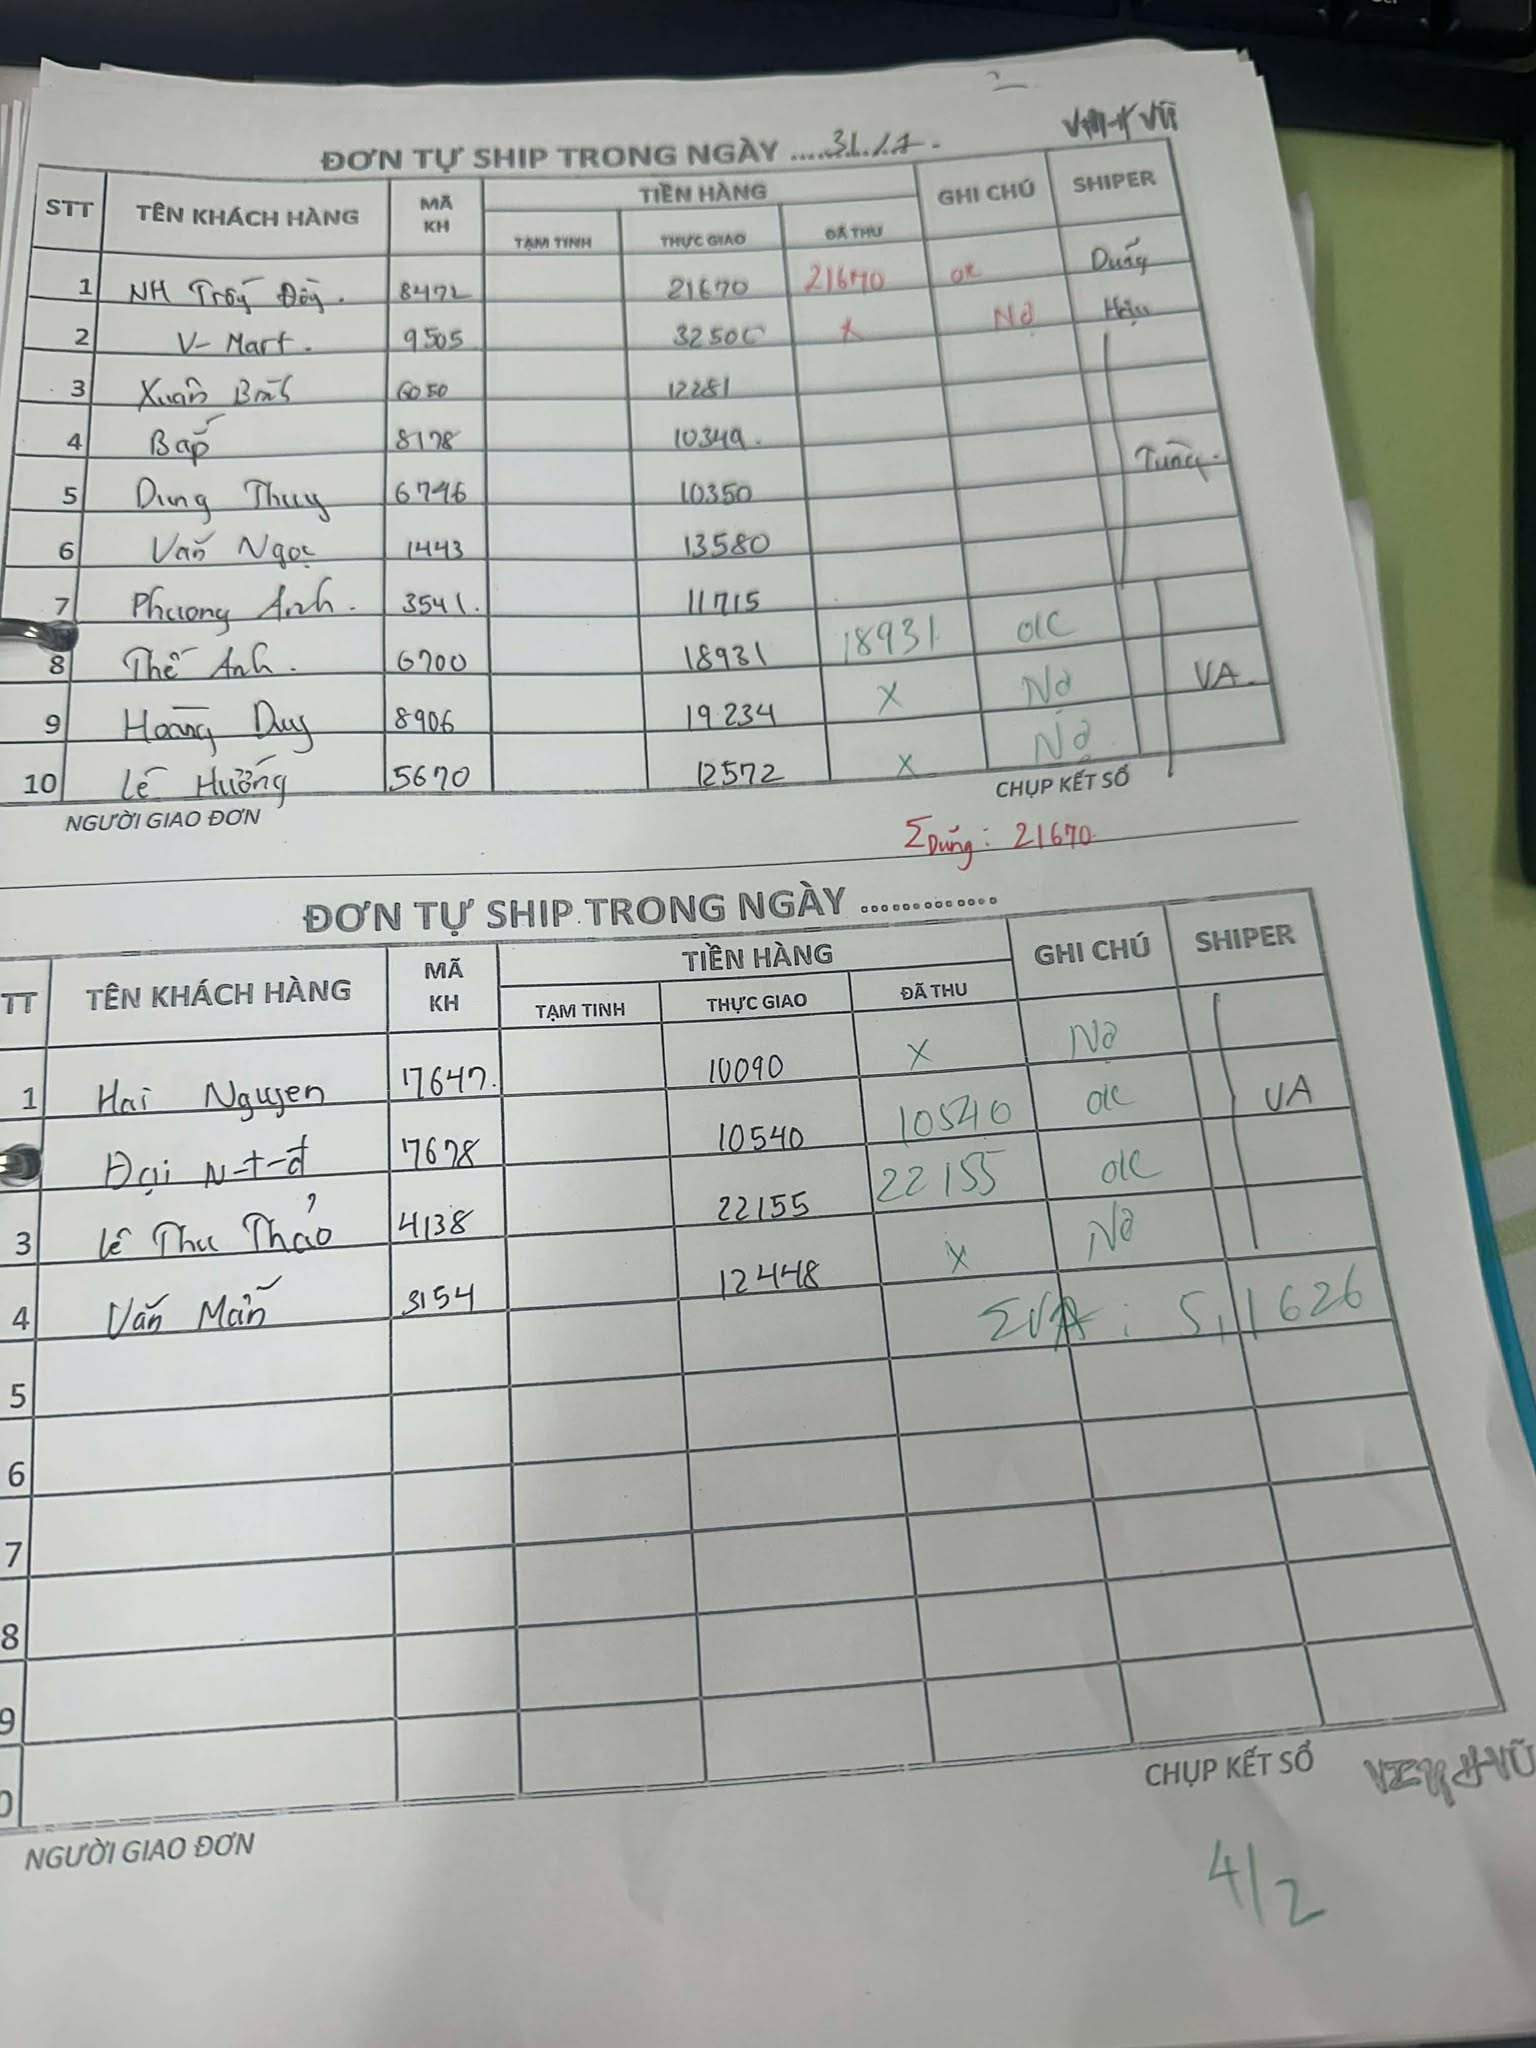 ĐƠN TỰ SHIP TRONG NGÀY ....31/1.
STT TÊN KHÁCH HÀNG MÃ KH TIỀN HÀNG GHI CHÚ SHIPER
TẠM TINH THỰC GIAO ĐÃ THU
1 NH Trống Đồng. 8472 21670 21670 ok Dũng
2 V-Mart. 9505 32500 x Nợ Hậu
3 Xuân Bình 6050 12281
4 Bắp 8178 10349.
5 Dung Thuy 6746 10350 Tùng.
6 Vân Ngọc 1443 13580
7 Phương Anh. 3541. 11715
8 Thế Anh. 6700 18931 18931 ok
9 Hoàng Duy 8906 19.234 x Nợ VA.
10 Lê Hường 5670 12572 x Nợ
NGƯỜI GIAO ĐƠN CHỤP KẾT SỔ
Σ Dũng: 21670
ĐƠN TỰ SHIP TRONG NGÀY .............
TT TÊN KHÁCH HÀNG MÃ KH TIỀN HÀNG GHI CHÚ SHIPER
TẠM TINH THỰC GIAO ĐÃ THU
1 Hai Nguyen 7647. 10090 x Nợ
Đại N-t-đ 7678 10540 10540 ok VA
3 Lê Thu Thảo 4138 22155 22155 ok
4 Vân Mẩn 3154 12448 x Nợ
ΣVA: 5,1626
5
6
7
8
9
0
NGƯỜI GIAO ĐƠN CHỤP KẾT SỔ
4/2